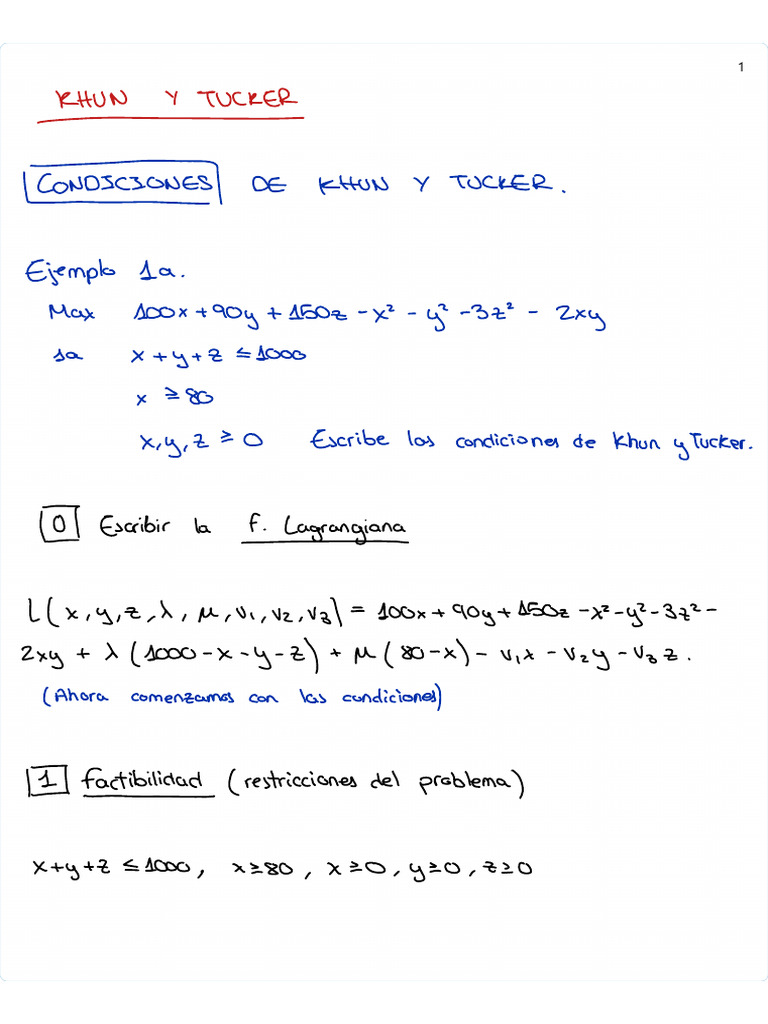 1
KHUN Y TUCKER
CONDICIONES DE KHUN Y TUCKER.
Ejemplo 1a.
Max 100x + 90y + 150z - x² - y² - 3z² - 2xy
sa x + y + z ≤ 1000
x ≥ 80
x, y, z ≥ 0 Escribe las condiciones de Khun y Tucker.
0 Escribir la f. Lagrangiana
L(x, y, z, λ, μ, v₁, v₂, v₃) = 100x + 90y + 150z - x² - y² - 3z² -
2xy + λ(1000 - x - y - z) + μ(80 - x) - v₁x - v₂y - v₃z.
(Ahora comenzamos con las condiciones)
1 factibilidad (restricciones del problema)
x+y+z ≤ 1000, x ≥ 80, x ≥ 0, y ≥ 0, z ≥ 0